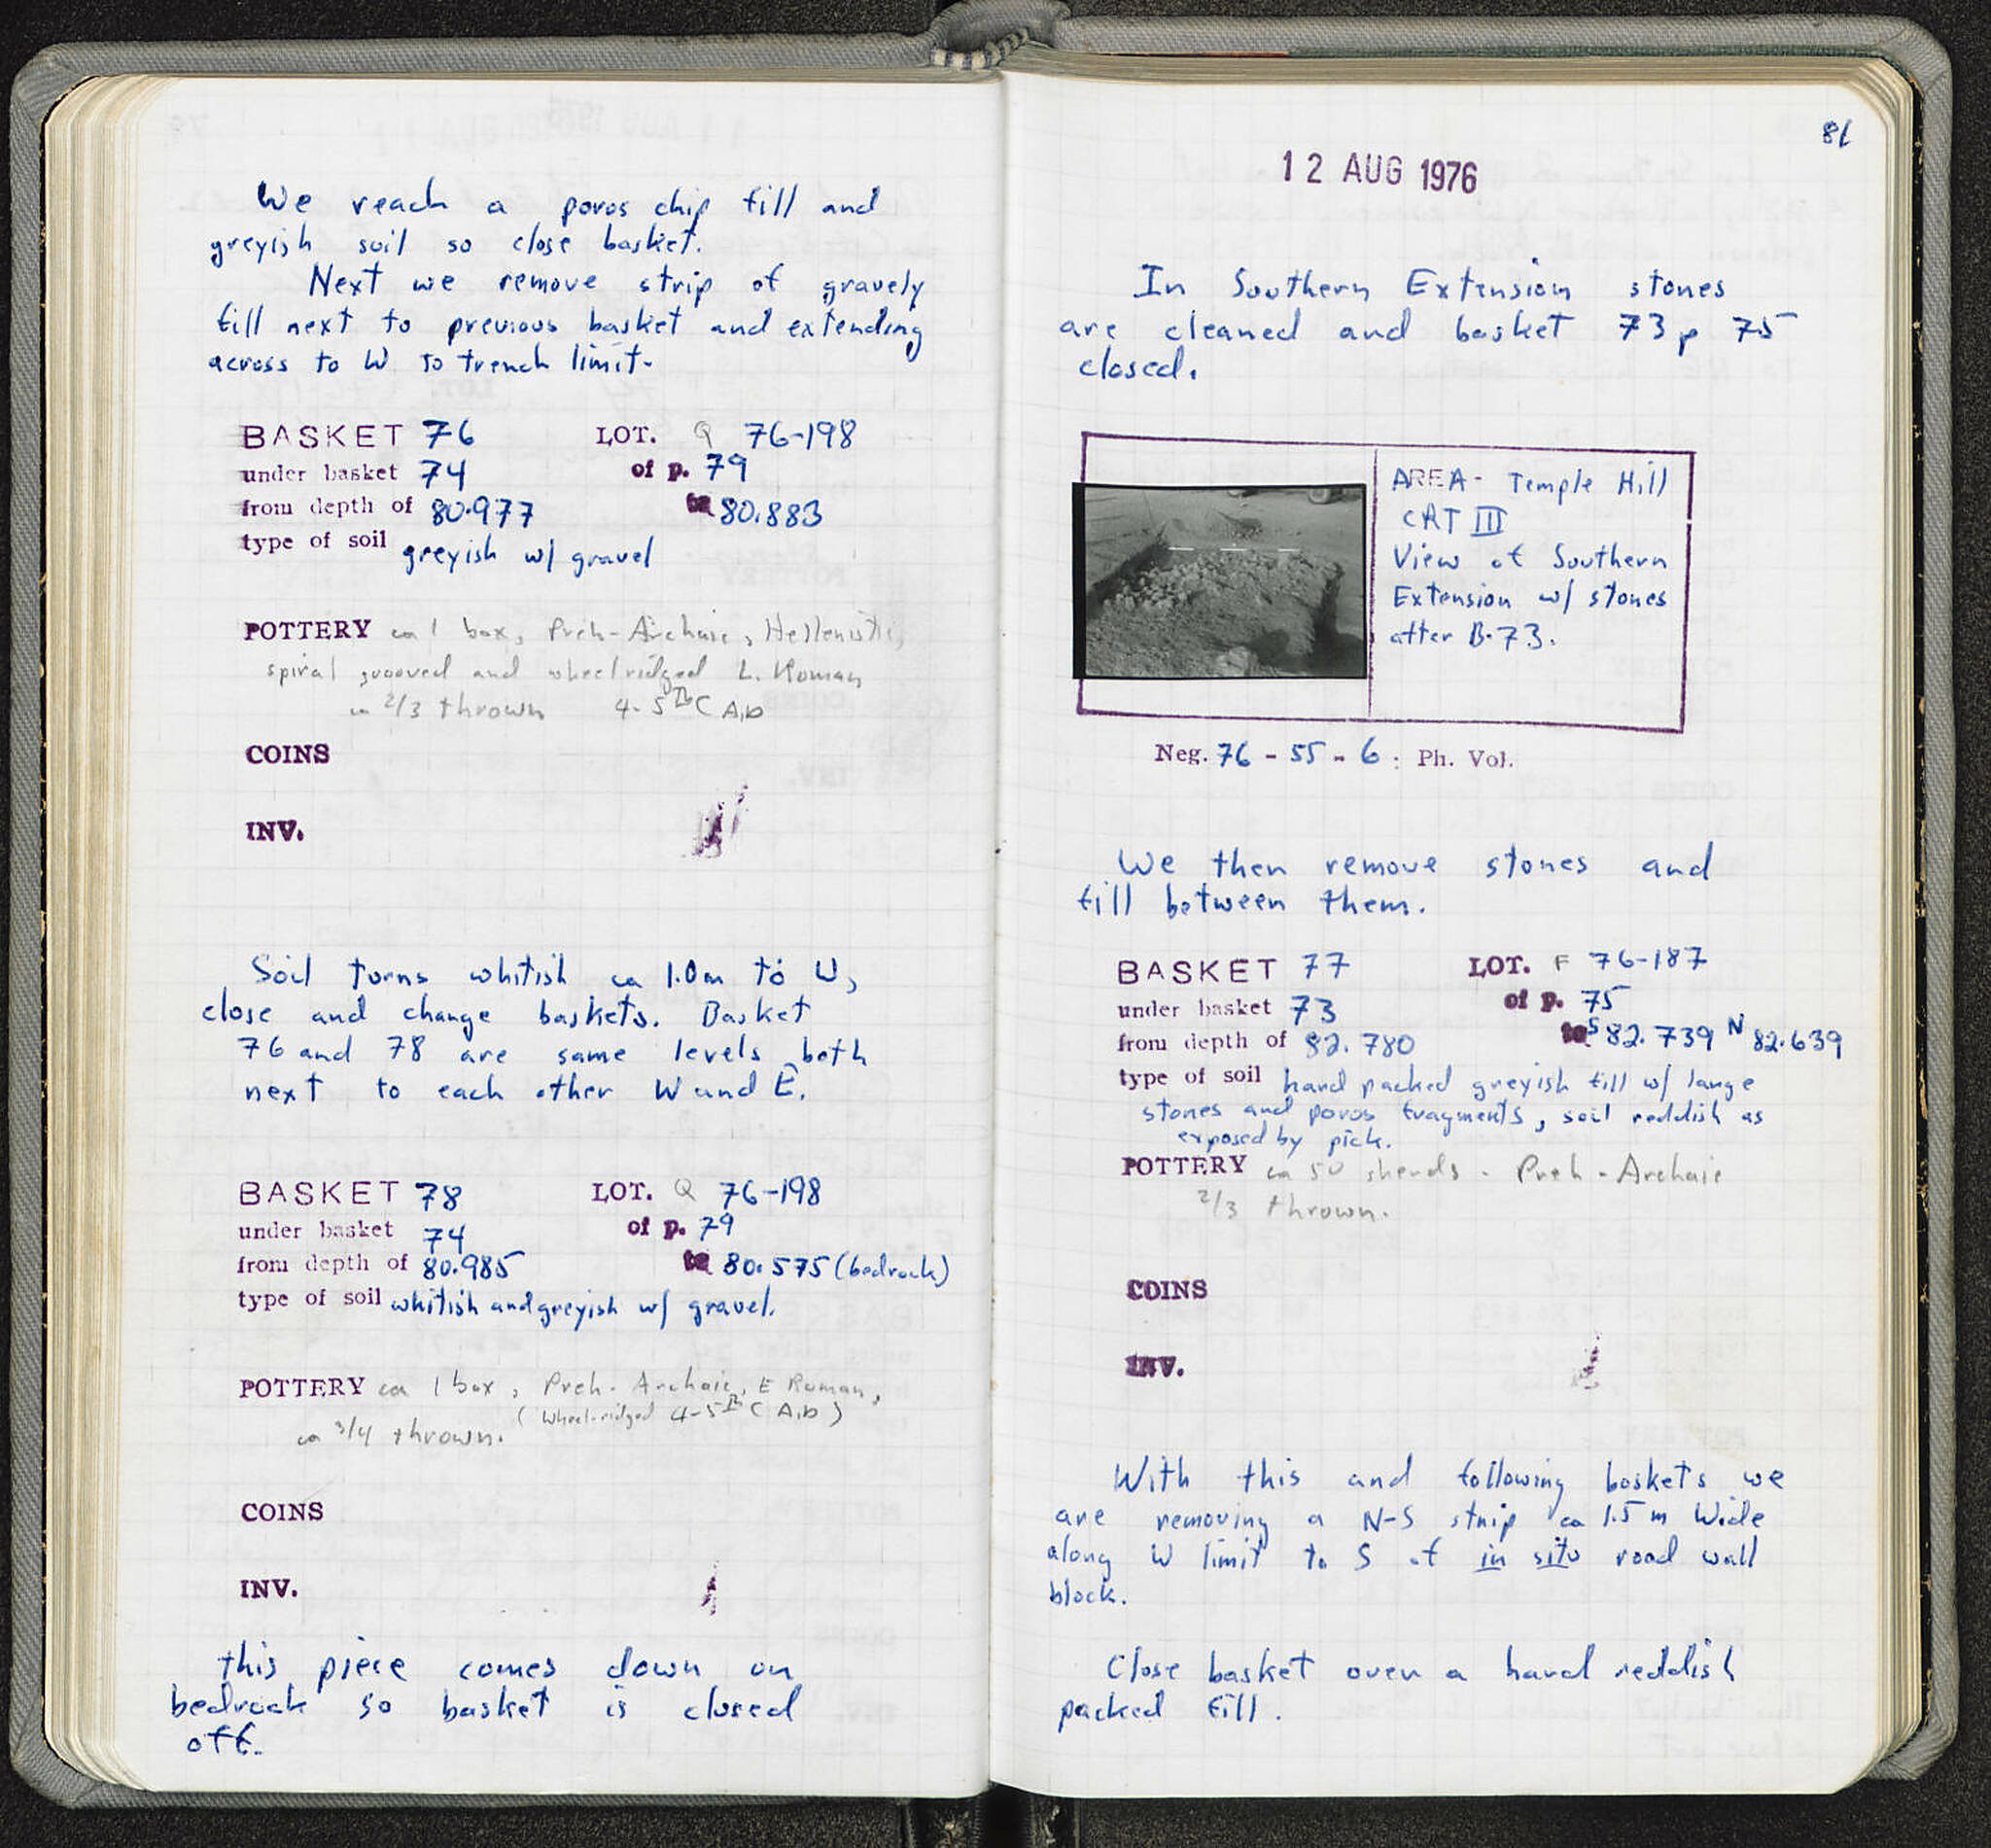 We reach a poros chip fill and
greyish soil so close basket.
Next we remove strip of gravely
fill next to previous basket and extending
across to W to trench limit.
BASKET 76 LOT. Q 76-198
under basket 74 of p. 79
from depth of 80.977 to 80.883
type of soil greyish w/ gravel
POTTERY ca 1 box, Preh-Archaic, Hellenistic,
spiral grooved and wheelridged L. Roman
ca 2/3 thrown 4-5th C A.D
COINS
INV.
Soil turns whitish ca 1.0m to W,
close and change baskets. Basket
76 and 78 are same levels both
next to each other W and E.
BASKET 78 LOT. Q 76-198
under basket 74 of p. 79
from depth of 80.985 to 80.575 (bedrock)
type of soil whitish and greyish w/ gravel.
POTTERY ca 1 box, Preh-Archaic, E Roman,
(Wheel-ridged 4-5th C A.D)
ca 3/4 thrown.
COINS
INV.
this piece comes down on
bedrock so basket is closed
off.
81
12 AUG 1976
In Southern Extension stones
are cleaned and basket 73 p 75
closed.
AREA- Temple Hill
CRT III
View of Southern
Extension w/ stones
after B.73.
Neg. 76 - 55 - 6 : Ph. Vol.
We then remove stones and
fill between them.
BASKET 77 LOT. F 76-187
under basket 73 of p. 75
from depth of 82.780 to S 82.739 N 82.639
type of soil hard packed greyish fill w/ large
stones and poros fragments, soil reddish as
exposed by pick.
POTTERY ca 50 sherds - Preh-Archaic
2/3 thrown.
COINS
INV.
With this and following baskets we
are removing a N-S strip ca 1.5 m Wide
along W limit to S of in situ road wall
block.
Close basket over a hard reddish
packed fill.